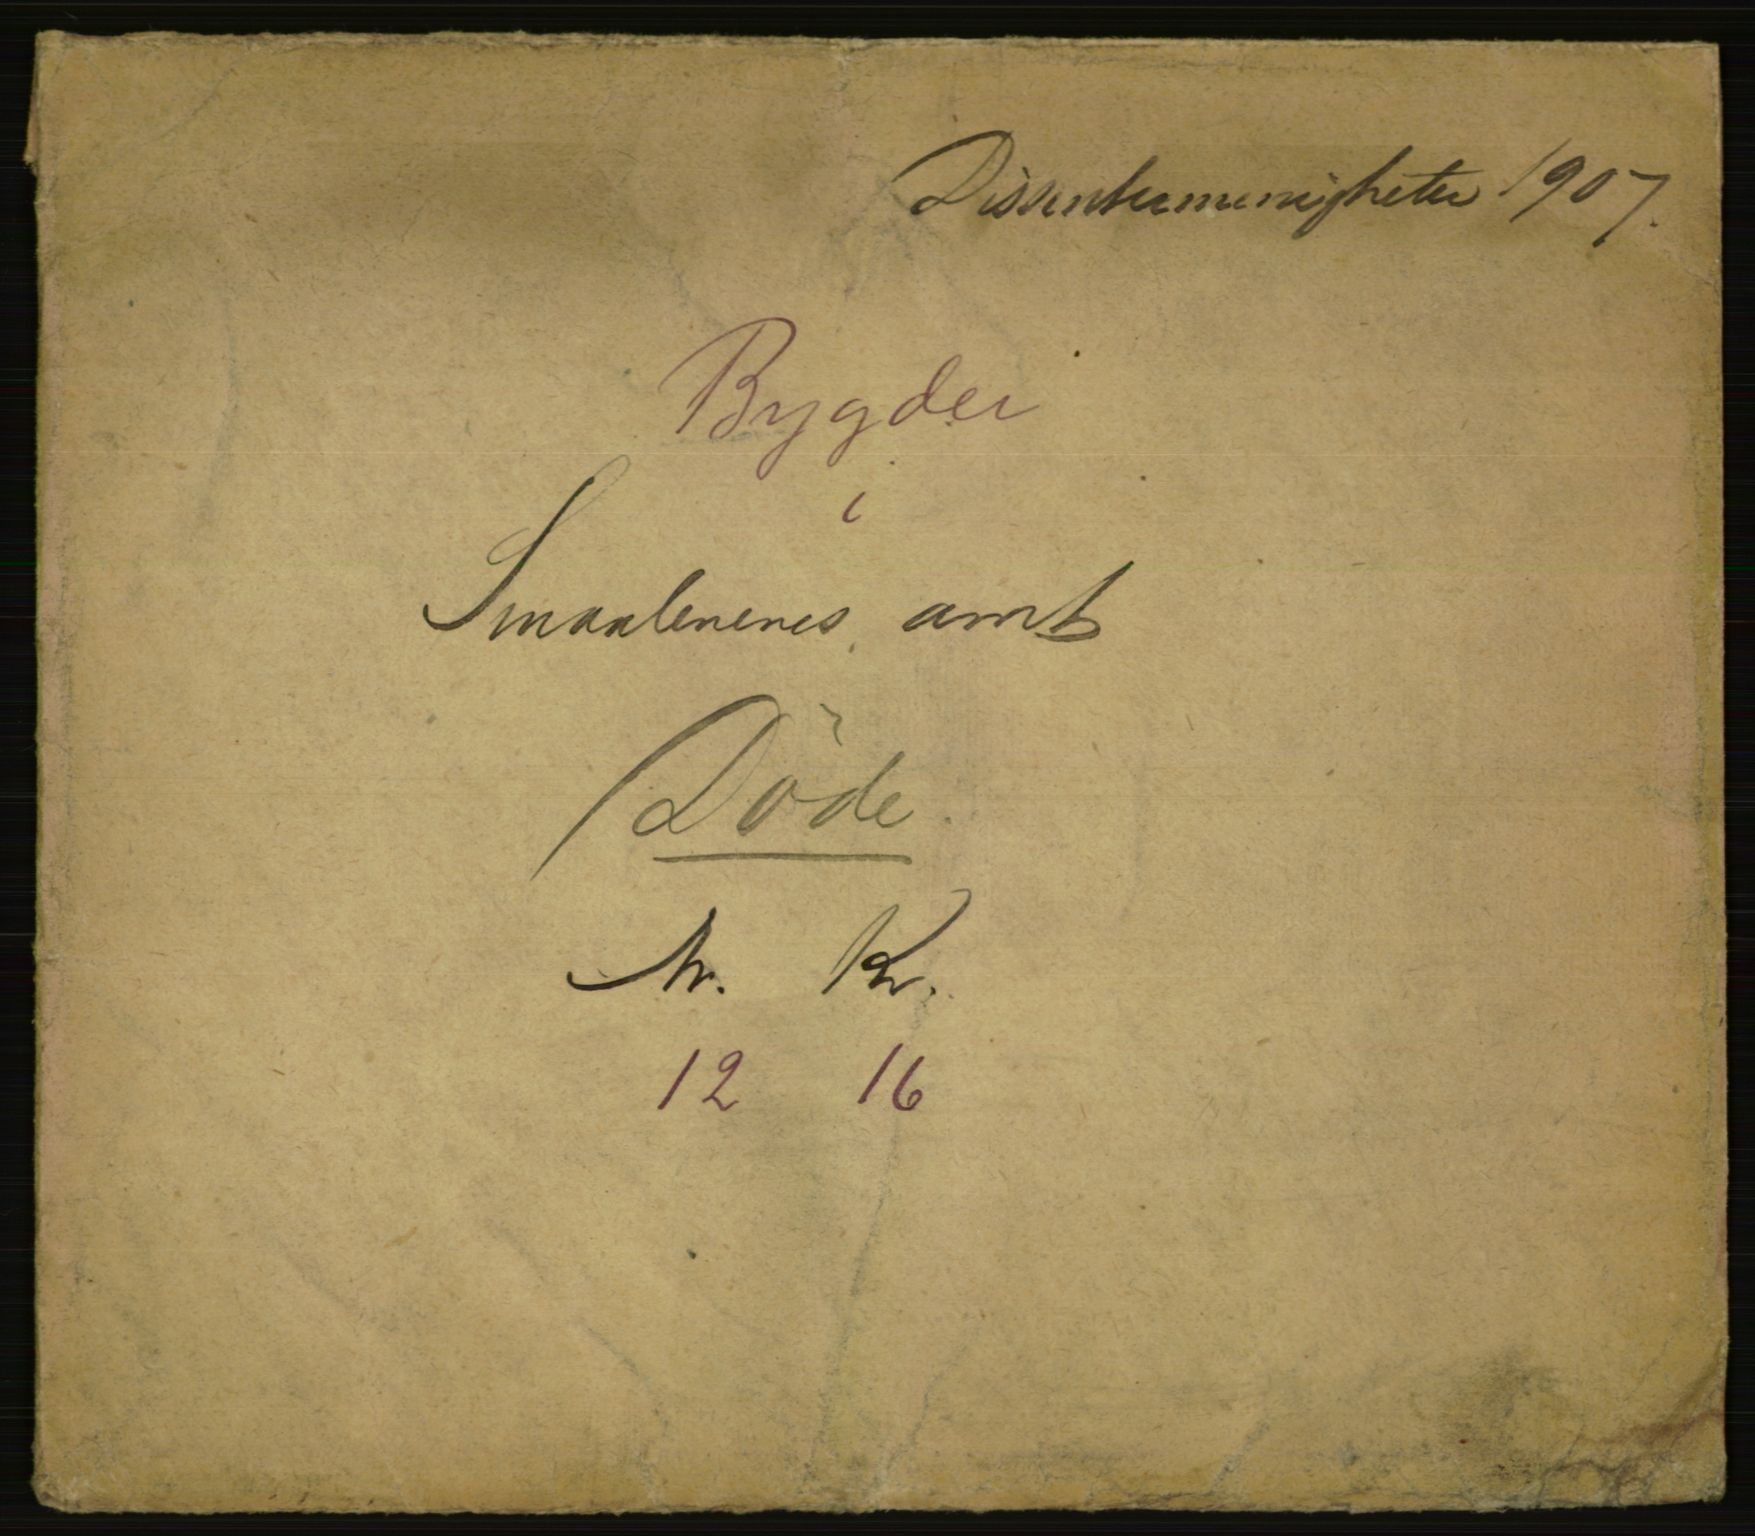 Dissentermenigheter 1907.
Bygder
i
Smaalenenes amt
Döde
M. Kv.
12 16